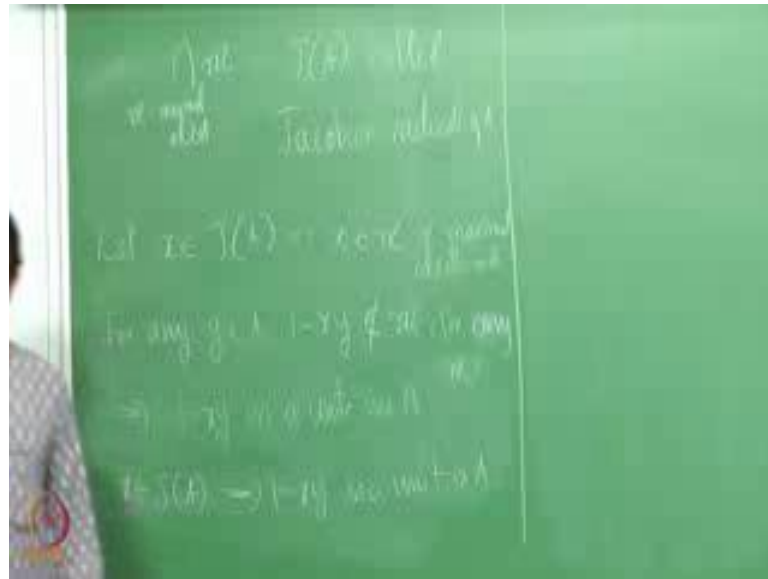 ∩ 𝔪 = J(A) called
𝔪 maximal ideal Jacobson radical of A
Let x ∈ J(A) ⇒ x ∈ 𝔪 ∀ maximal ideal 𝔪
For any y ∈ A 1-xy ∉ 𝔪 for any 𝔪
⇒ 1-xy is a unit in A
x ∈ J(A) ⇒ 1-xy is a unit in A